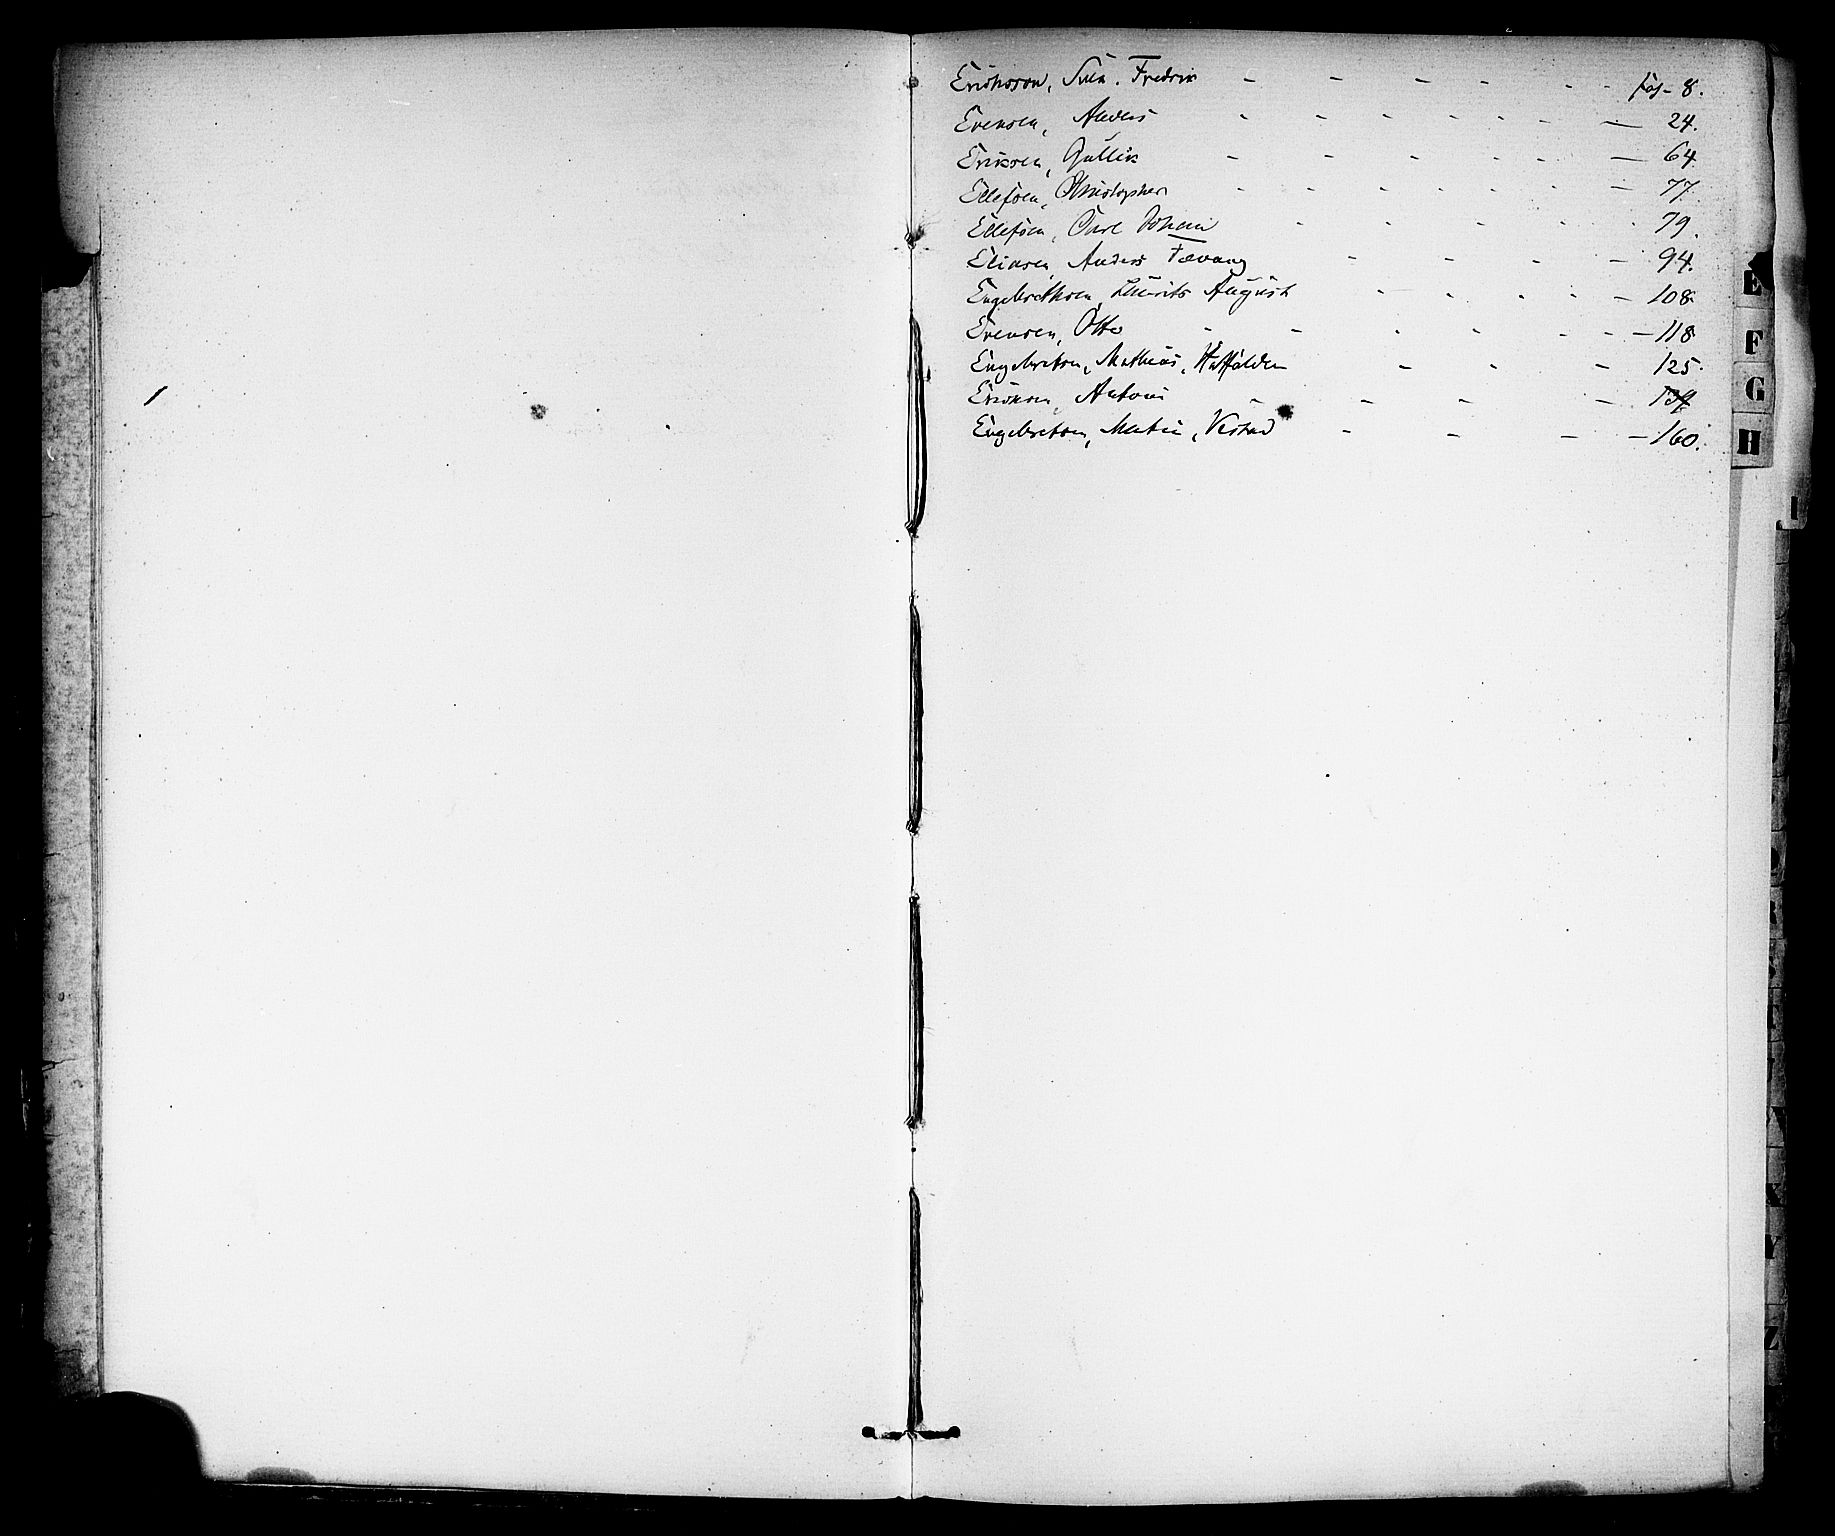 Eriksson, Sven. Fredrik - - - - - - - Pag. 8.
Evensen, Anders - - - - - - - — 24.
Eriksen, Gullik - - - - - - — 64.
Ellefsen, Christopher - - - - - - — 77.
Ellefsen, Carl Johan - - - - - - 79.
Eliasen, Anders Tævang - - - - — 94.
Engebrethsen, Laurits August - - - - — 108.
Evensen, Otto - - - - - - - — 118
Engebretsen, Mathias, - - — 125.
Eriksen, Antoni - - - — 134
Engebretsen, Martin, - - - — 160.
E
F
G
H
I
R
X
Y
Z